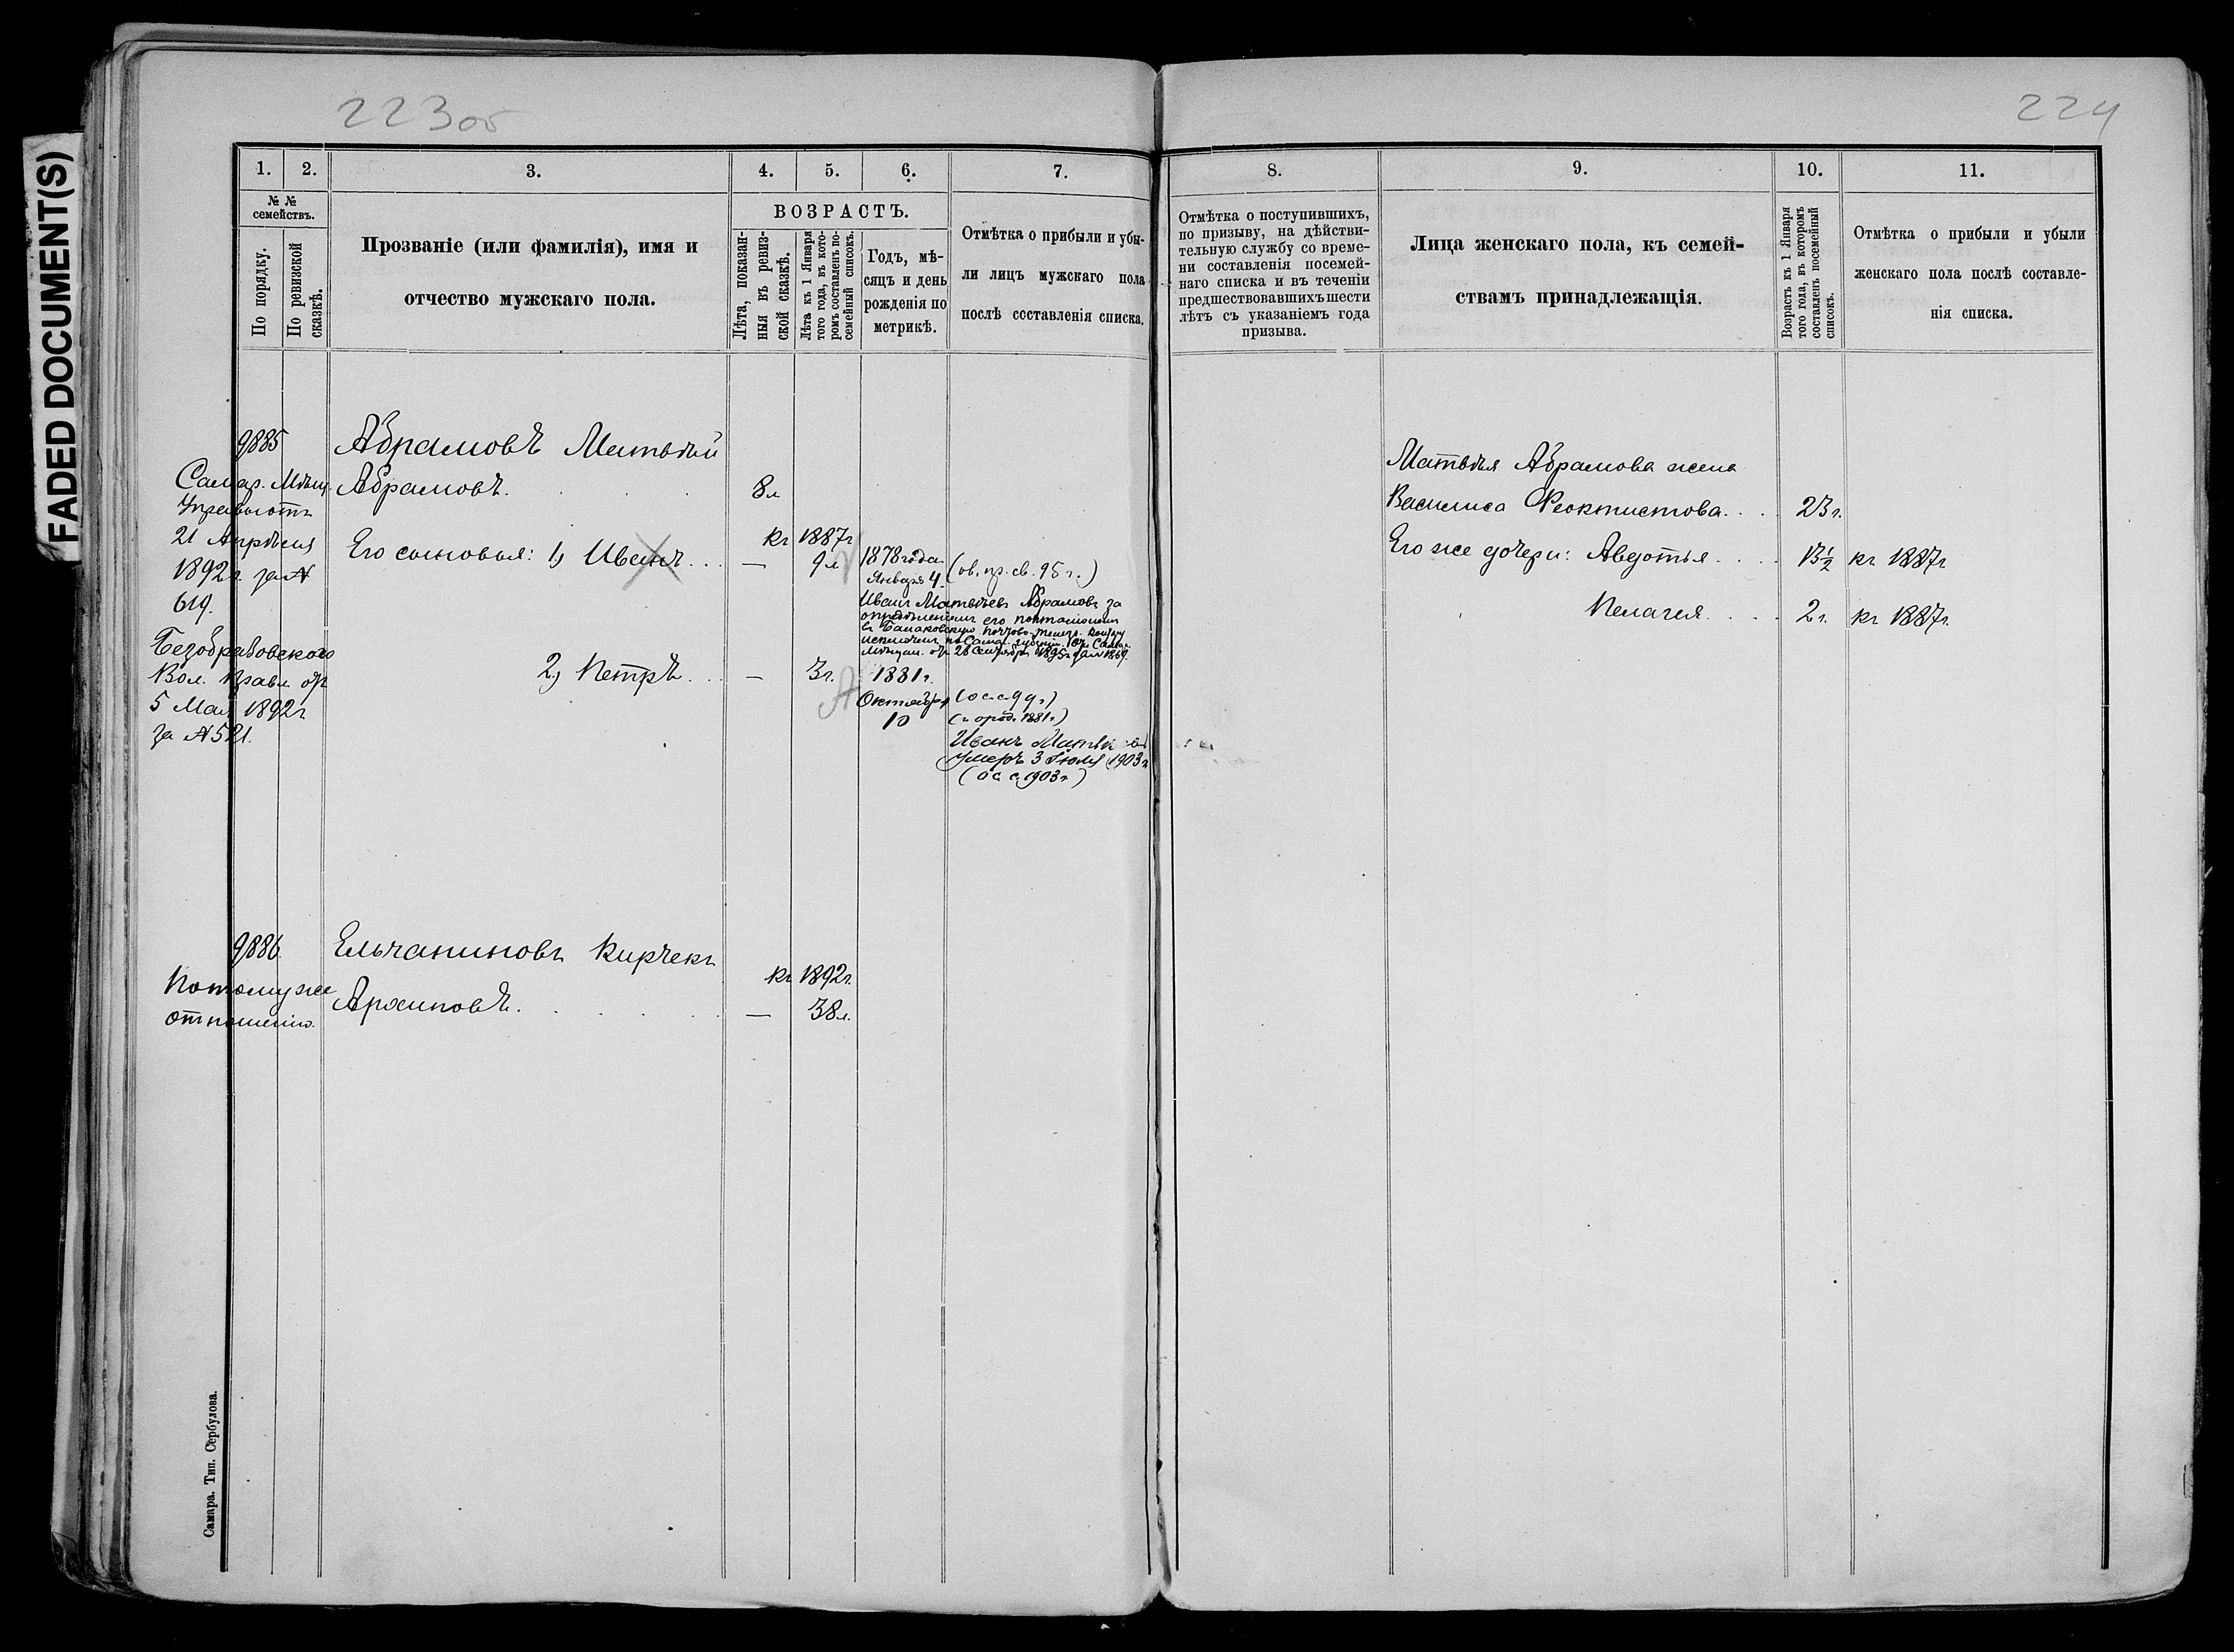 FADED DOCUMENT(S)
223 об
224
1.
2.
3.
4.
5.
6.
7.
8.
9.
10.
11.
№ №
семействъ.
По порядку.
По ревизской
сказкѣ.
Прозваніе (или фамилія), имя и
отчество мужскаго пола.
ВОЗРАСТЪ.
Лѣта, показан-
ныя въ ревиз-
ской сказкѣ.
Лѣта къ 1 Января
того года, въ кото-
ромъ составленъ по-
семейный списокъ.
Годъ, мѣ-
сяцъ и день
рожденія по
метрикѣ.
Отмѣтка о прибыли и убы-
ли лицъ мужскаго пола
послѣ составленія списка.
Отмѣтка о поступившихъ,
по призыву, на дѣйстви-
тельную службу со време-
ни составленія посемей-
наго списка и въ теченіи
предшествовавшихъ шести
лѣтъ съ указаніемъ года
призыва.
Лица женскаго пола, къ семей-
ствамъ принадлежащія.
Возрастъ къ 1 Января
того года, въ которомъ
составленъ посемейный
списокъ.
Отмѣтка о прибыли и убыли
женскаго пола послѣ составле-
нія списка.
9885
Самар. Мѣщ.
21 Апрѣля
1892г. за №
619.
Безобразовского
Вол. Правл. отъ
5 Мая 1892г
за №521.
Абрамовъ Матвѣй
Абрамовъ.
8л
Его сыновья: 1, Иванъ...
къ 1887г
— 9л
1878 года
Января 4.
(ов. пр. св. 95 г.)
Иванъ Матвѣевъ Абрамовъ за
опредѣленіемъ его почталіономъ
въ Балаковскую почтово-телегр. контору
Мѣщан. отъ 28 Сентября 1895г за № 1869.
2, Петръ...
— 3г.
1881г.
Октября
10
(о с. с. 99 г)
Иванъ
умеръ 3 Іюля 1903г
(о с с 1903г)
Матвѣя Абрамова жена
Василиса Феоктистова...
23г.
Его же дочери: Авдотья....
13½
къ 1887г
Пелагея....
2г.
къ 1887г.
9886.
Потому же
отношенію.
Ельчаниновъ
Архиповъ.
къ 1892г.
— 38л.
Самара. Тип. Сербулова.